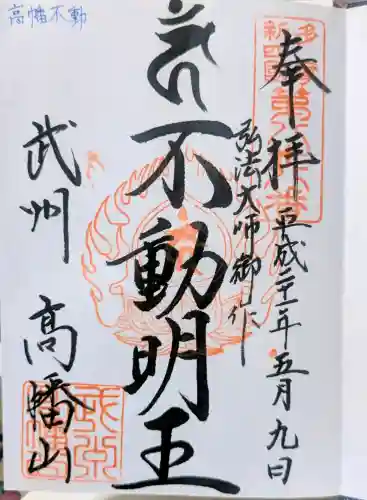 高幡不動
奉拝
平成二十一年五月九日
弘法大師御作
不動明王
武州 高幡山